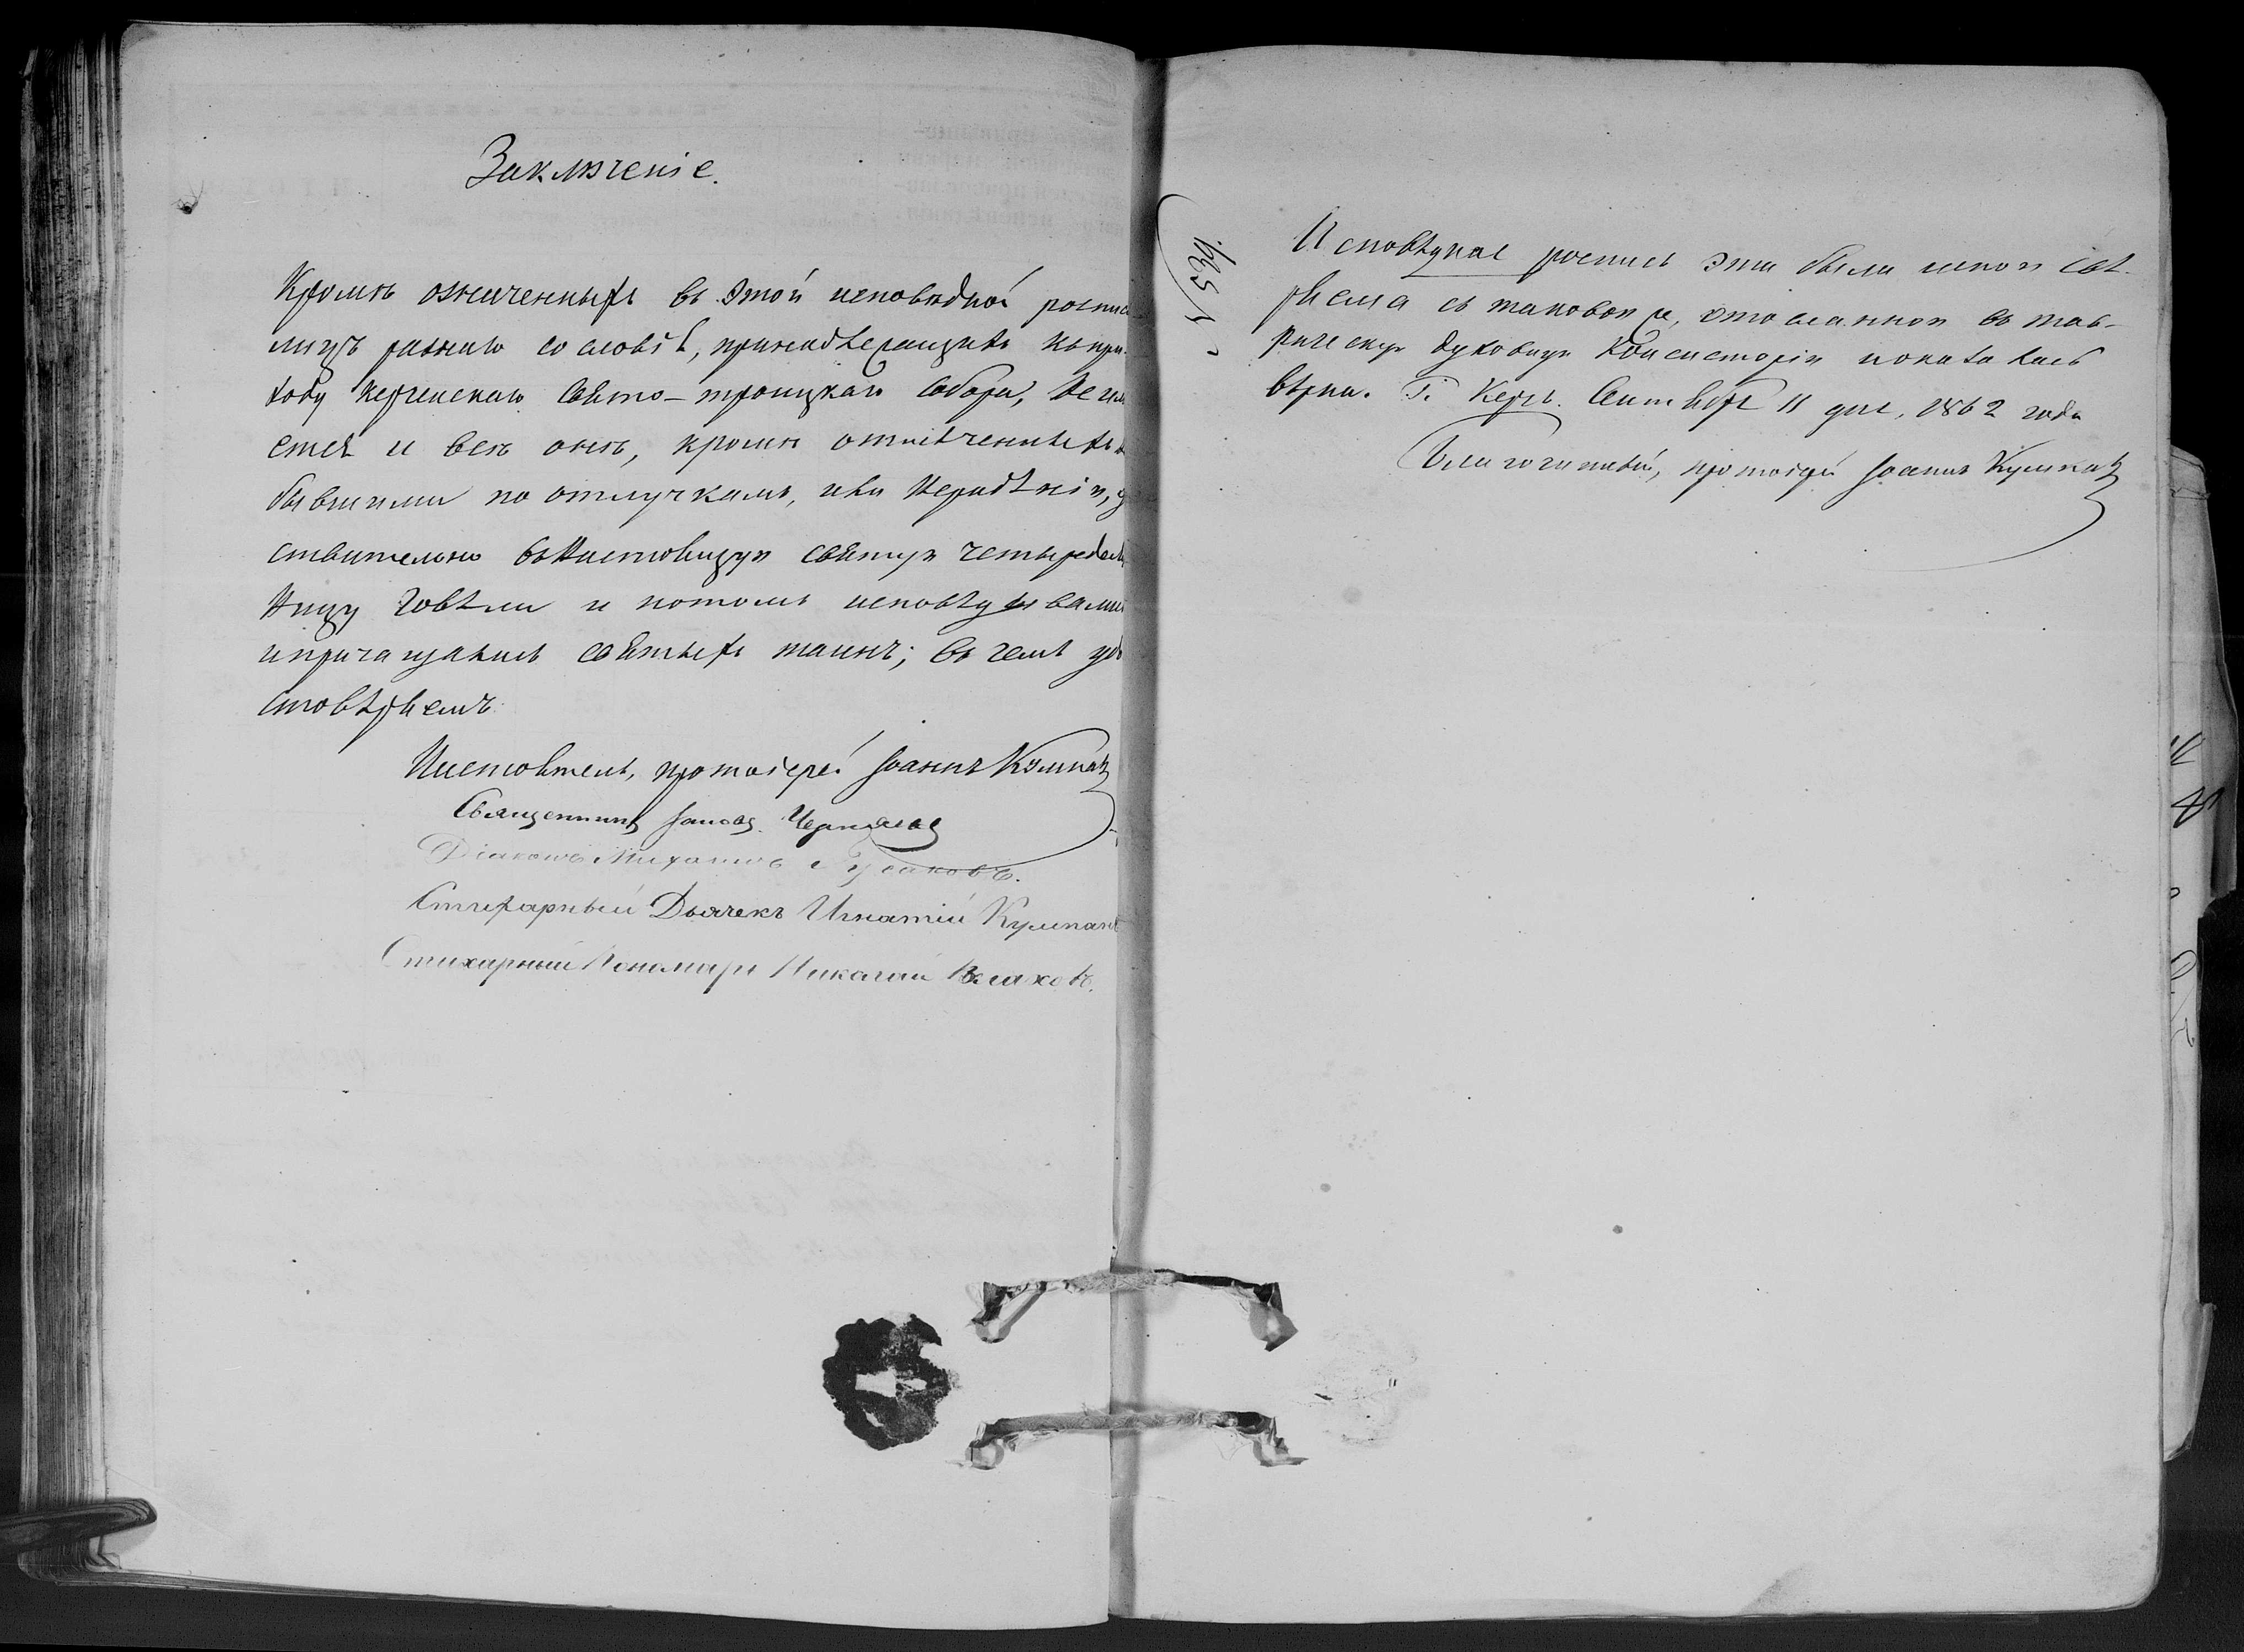 Заключеніе.
Кромѣ означенныхъ въ этой исповѣдной роспис
лицъ разнаго сословія, принадлежащихъ къ при-
ходу керченскаго Свято-троицкаго собора, не
и всѣ они, кромѣ отмѣченныхъ
бывшими по отлучкамъ, или нерадѣнію,
ствительно въ настоящую святую четыредеся
ницу говѣли и потомъ исповѣдывали
и причащались святыхъ таинъ; въ чемъ удо
стовѣряемъ
Настоятель, протоіерей Іоаннъ Кумпан
Священникъ Іаковъ Чернявс
Діаконъ Михаилъ Гусаковъ.
Стихарный Дьячекъ Игнатій Кумпанъ
Стихарный Пономарь Николай Влаховъ.
Исповѣдная роспись эта была мною свѣ-
ряема съ таковою же, отосланною въ тав-
рическую духовную Консисторію и оказалась
вѣрна. Г. Керчь. Сентября 11 дня, 1862 года
Благочинный, протоіерей Іоаннъ Кумпан